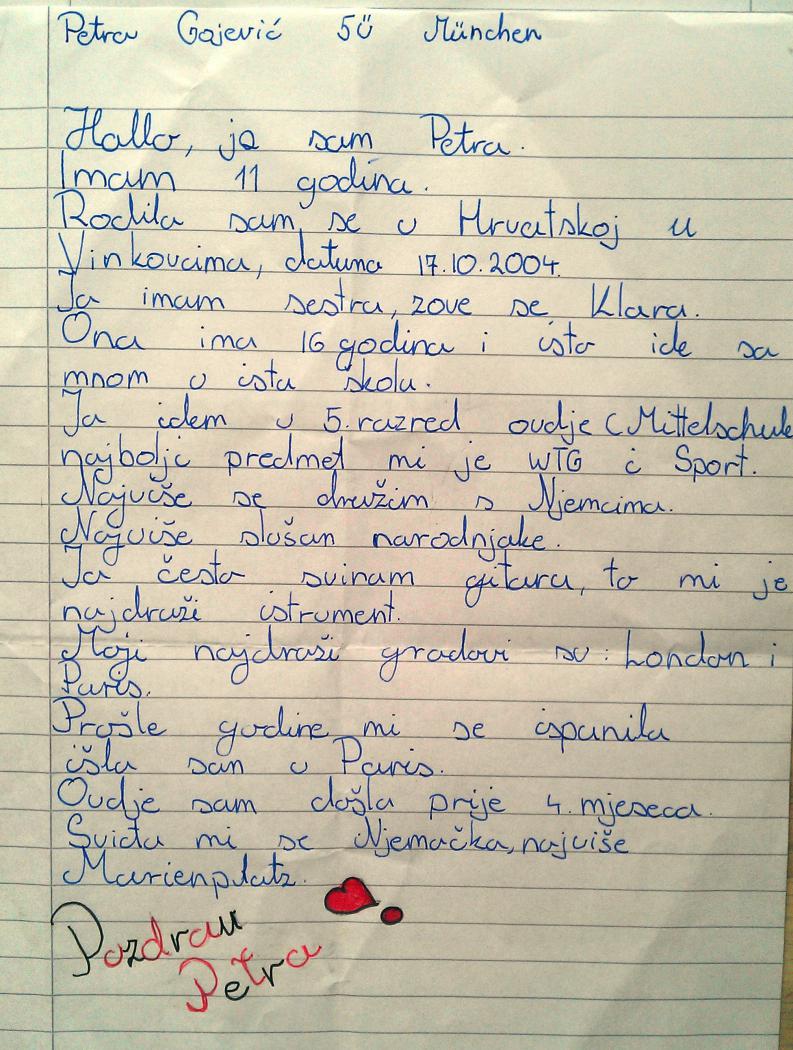 Petra Gajević 5ü München
Hallo, ja sam Petra.
Imam 11 godina.
Rodila sam se u Hrvatskoj u
Vinkovcima, datuna 17.10.2004.
Ja imam sestra, zove se Klara.
Ona ima 16 godina i isto ide sa
mnom u ista školu.
Ja idem u 5. razred ovdje (Mittelschule
najbolji predmet mi je WTG i Sport.
Najviše se družim s Njemcima.
Najviše slušan narodnjake.
Ja često svinam gitaru, to mi je
najdraži istrument.
Moji najdraži gradovi su: London i
Paris.
Prošle godine mi se ispunila
išla san u Paris.
Ovdje sam došla prije 4. mjeseca.
Sviđa mi se Njemačka, najviše
Marienplatz.
Pozdrav
Petra